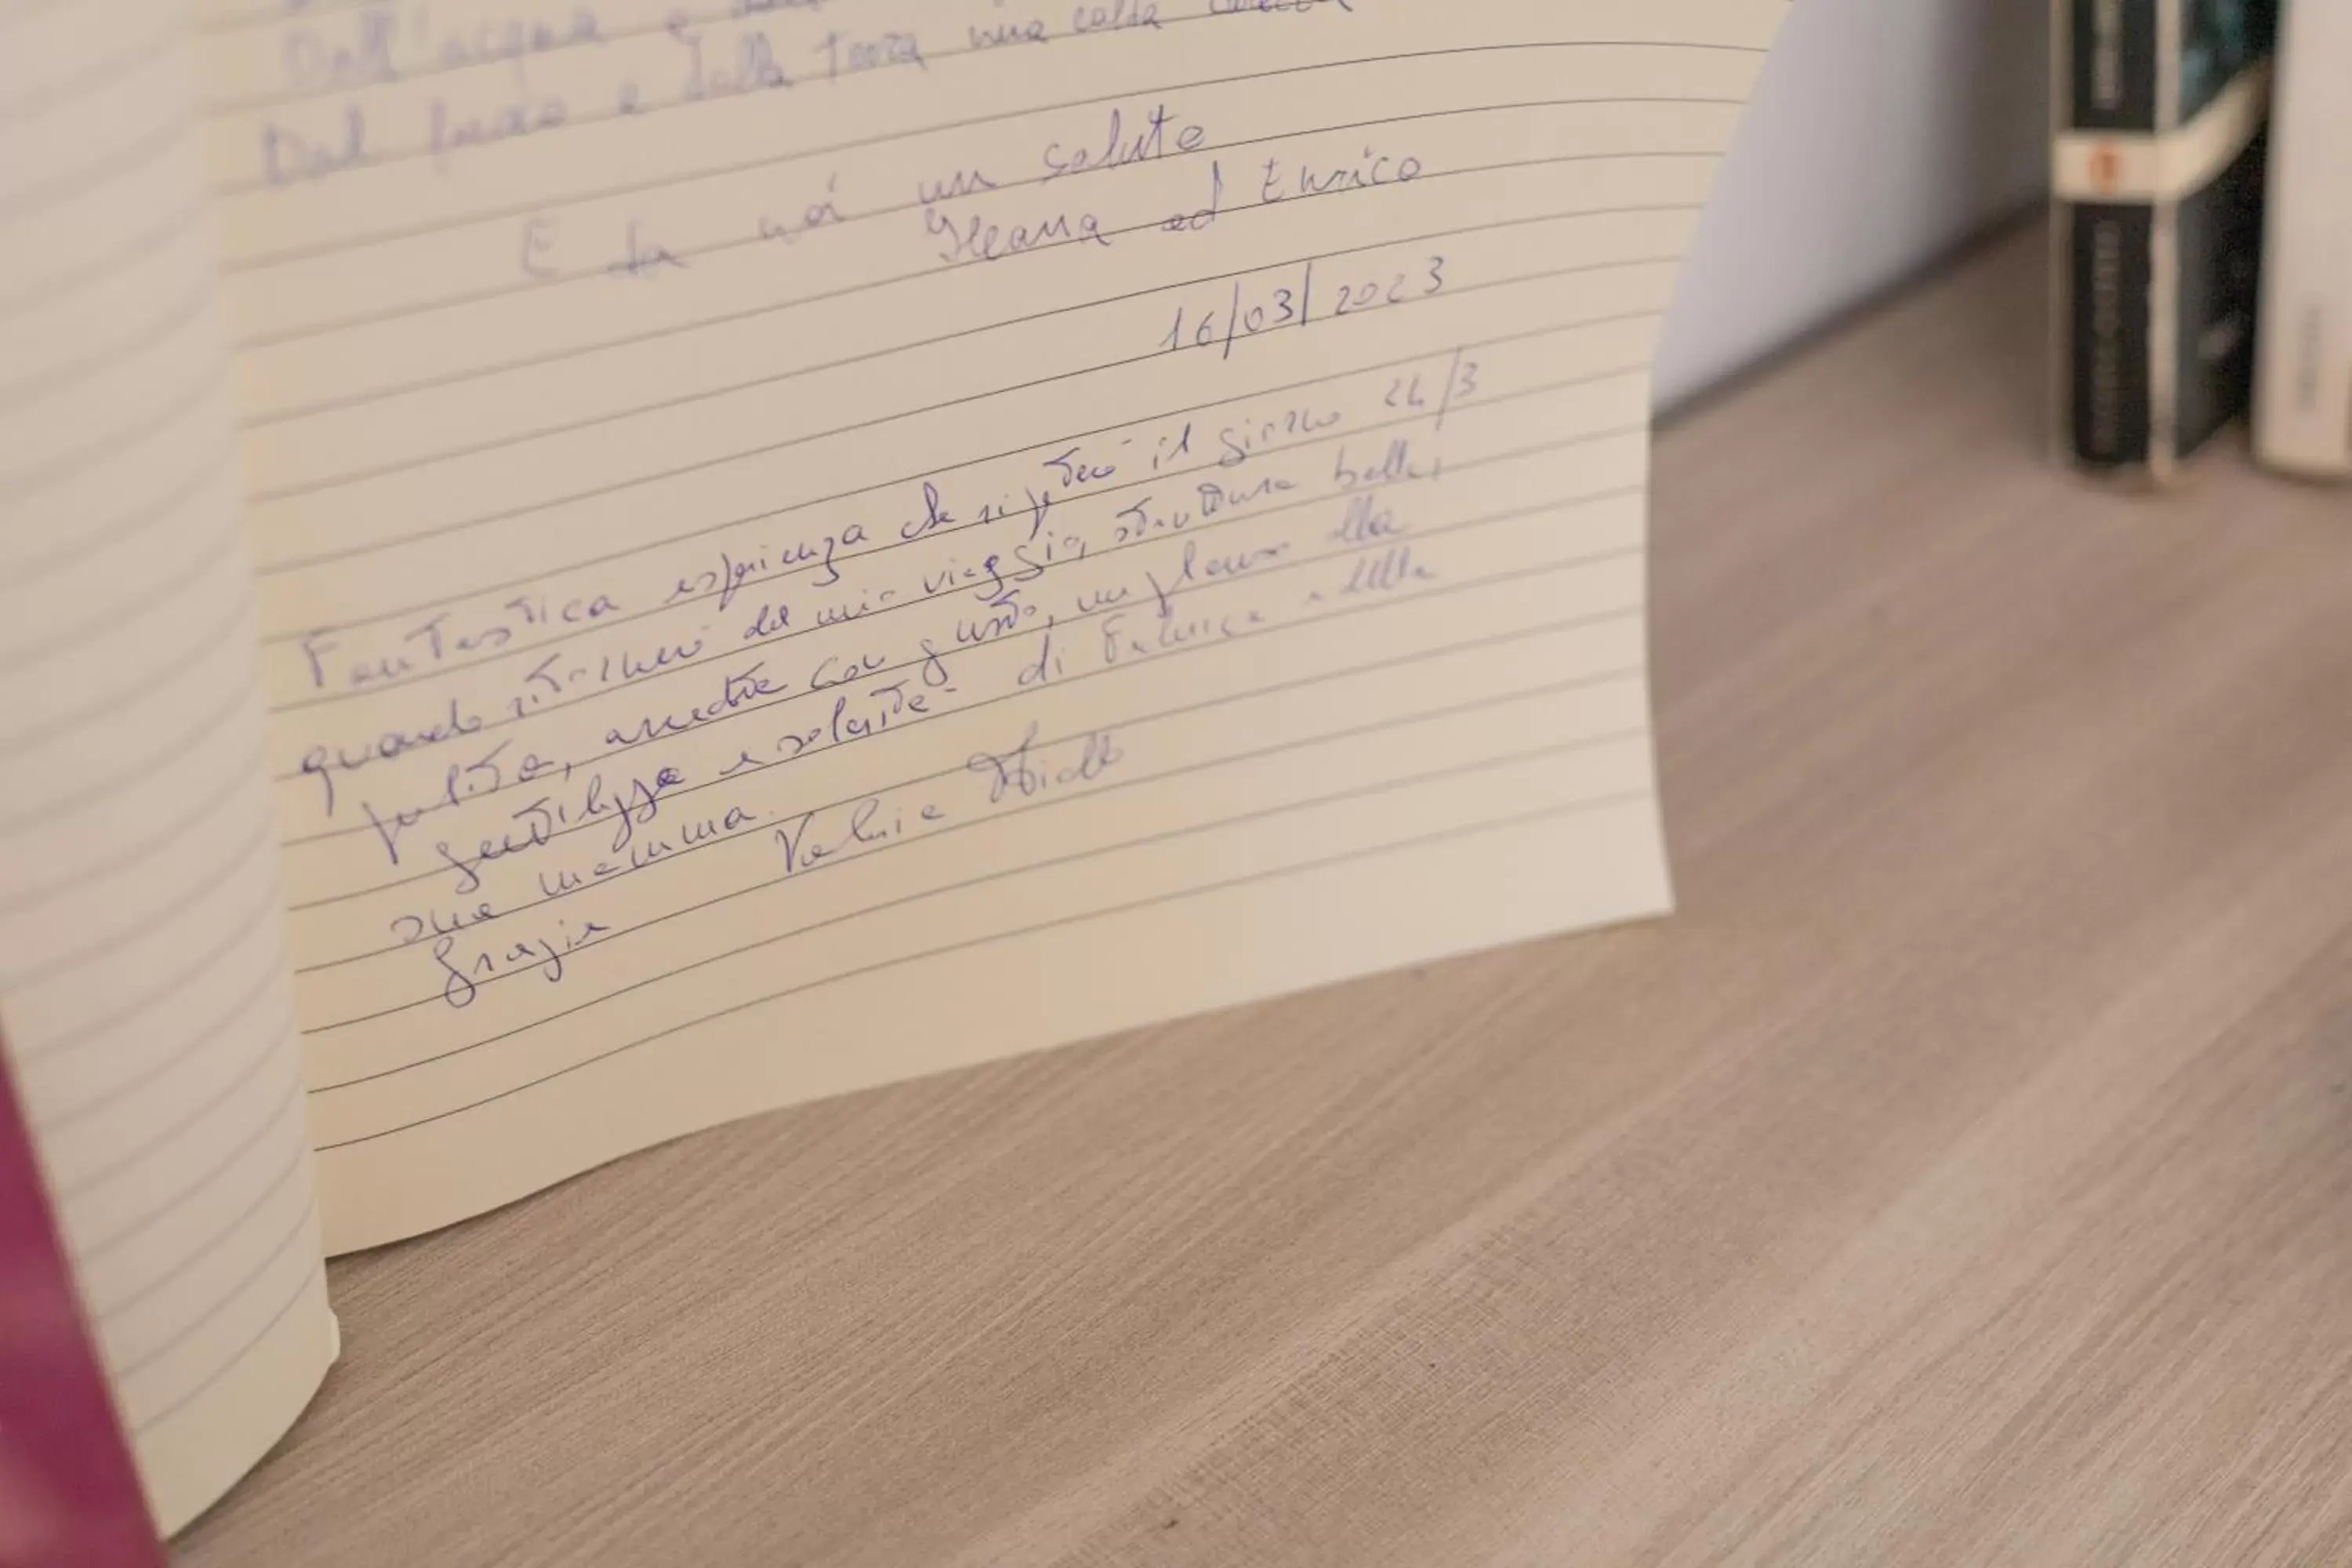 Dall'acqua e
Dal fuoco e dalla terra una calda carezza
E da noi un saluto
Ileana ed Enrico
16/03/2023
Fantastica esperienza che ripeterò il giorno 24/3
quando ritornerò dal mio viaggio, struttura bella,
pulita, arredata con gusto, un plauso alla
gentilezza e solarità di Federica e della
sua mamma.
Grazie Valeria